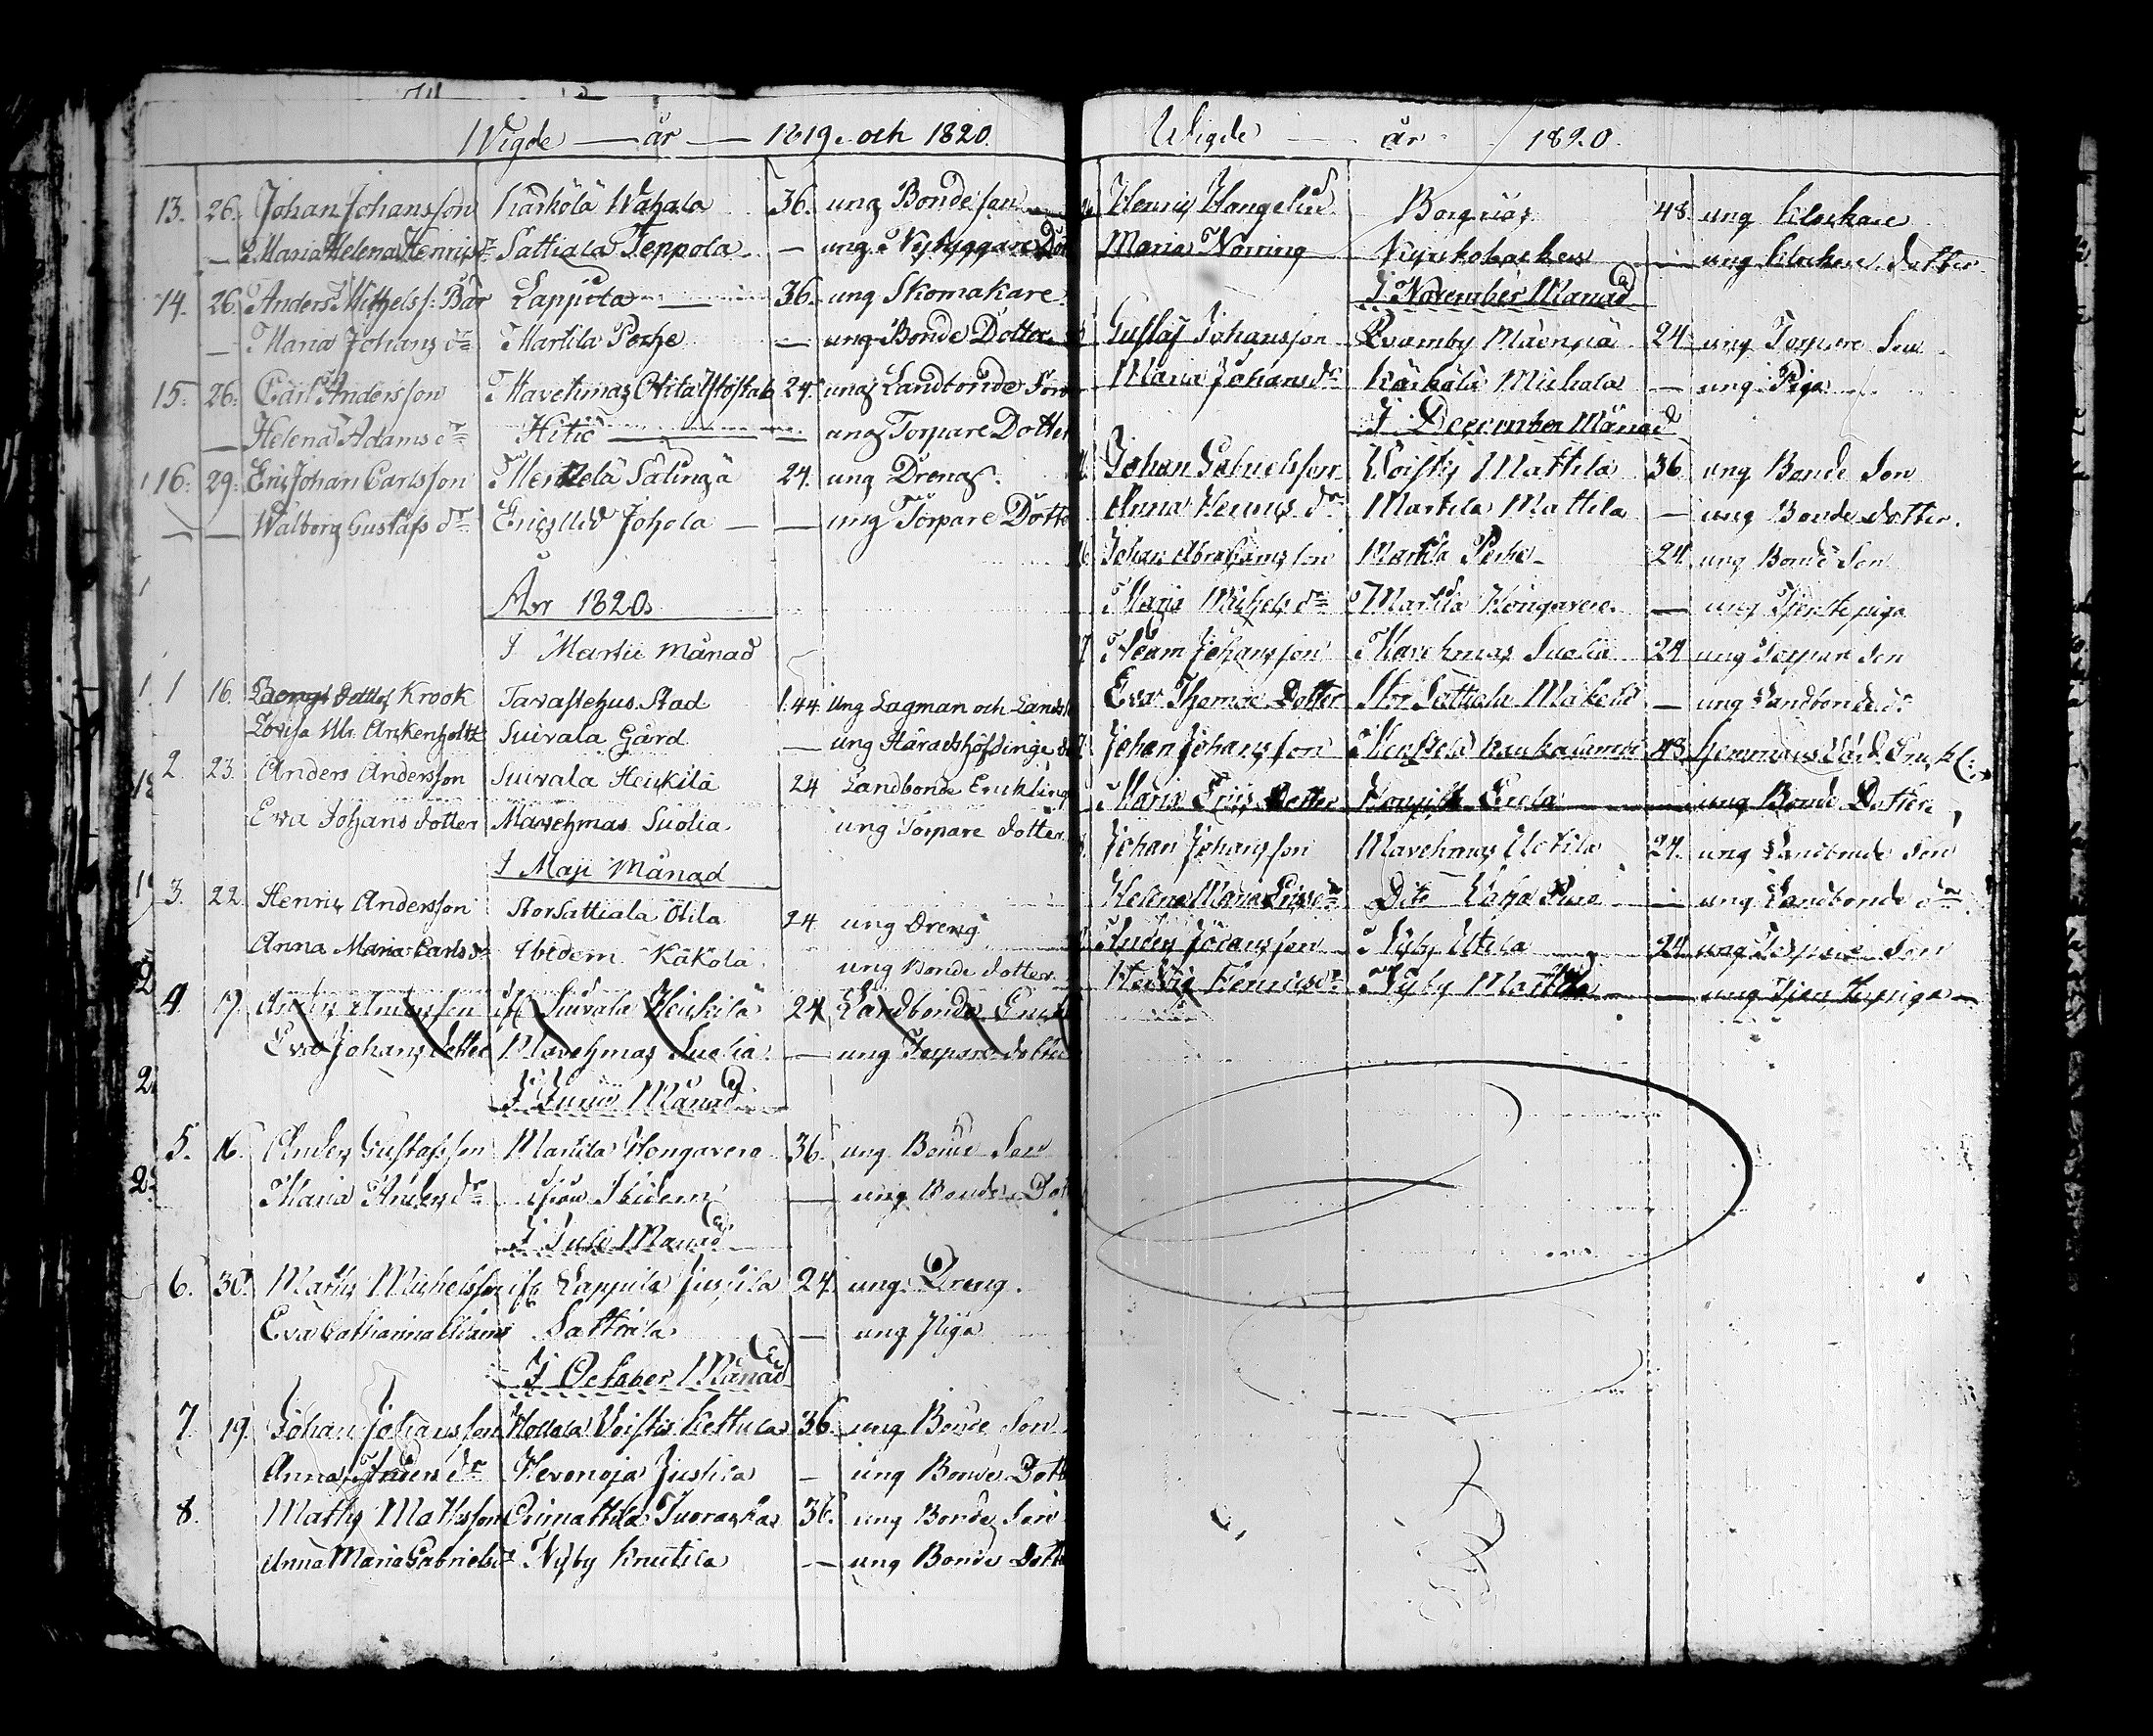 Wigde — år — 1819. och 1820.
13. 26. Johan Johansson Kärkölä Wähala 36. ung Bonde son
— Maria Helena Henrics dr Lattiala Teppola — ung Nybyggare Dot
14. 26. Anders Michels s: Bär Lappila 36. ung Skomakare
— Maria Johans dr Martila Perhe — ung Bonde Dotter
15. 26. Carl Andersson Mavehmas 24. ung Landbonde Son
— Helena Adams dr Hitiö — ung Torpare Dotter
16. 29. Eric Johan Carlsson 24. ung Dreng.
— Walborg Gustafs dr — ung Torpare Dotte
År 1820.
I Martii Månad
1 16. Krook Tavastehus Stad 1.44. Ung Lagman och
Lovisa Ulr. Arckenholtz Suivala Gård — ung Häradshöfdinge
2. 23. Anders Andersson Suivala Heickilä 24 Landbonde Enckling
Eva Johans dotter Mavehmas Suolia ung Torpare dotter
I Maji Månad
3. 22. Henric Andersson Stor Sattiala Otila 24 ung Dreng
Anna Maria Carls dr Ibidem Käkölä ung Bonde dotter
4. 17. Suivala Heickilä 24 Landbonde
Eva Johans dotter Mavehmas Suolia — ung Torpare dotter
I Junii Månad
5. 16. Anders Gustafsson Martila Hongavero 36. ung Bonde Son
Maria Anders dr Ibidem — ung Bonde Dot
I Julii Månad
6. 30. Matts Michelsson Lappila Jussila 24. ung Dreng.
Eva Catharina Adams — ung Piga
I October Månad
7. 19. Johan Johansson Hollola Voistis Kettula 36. ung Bonde Son
Anna Anders dr Hevonoja Jussila — ung Bonde Dott
8. Matts Mattsson Orimattila 36. ung Bonde Son
Anna Maria Gabriels dr Nyby Knutila — ung Bonde Dott
Wigde — år 1820.
Henric Hangelin Borgnäs 48. ung Klockare
Maria Norring Kyrkobacken — ung Klockare dotter
I November Månad
Gustaf Johansson Mäenpää 24. ung Torpare Son
Maria Johans dr Kärkölä Michala — ung Piga
I December Månad
Johan Gabrielsson Voistis Mattila 36 ung Bonde Son
Anna Henrics dr Martila Mattila — ung Bonde dotter.
Johan Abrahamsson Martila Perhe 24. ung Bonde Son
Maria Michels dr Martila Hongavero — ung Tjenste piga
Adam Johansson Mavehmas Suolia 24 ung Torpare Son
Eva Thomae Dotter Stor Sattiala Mäkelä — ung Landbonde dr
Johan Johansson 48.
Maria Erics Dotter — ung Bonde Dotter
Johan Johansson Mavehmas Uotila 24. ung Landbonde Son
Helena Maria Erics dr Dito — ung Landbonde dr
Anders Johansson Nyby Utila 24 ung Torpare Son
Hedvig Henrics dr Nyby Martila — ung Tjenste piga